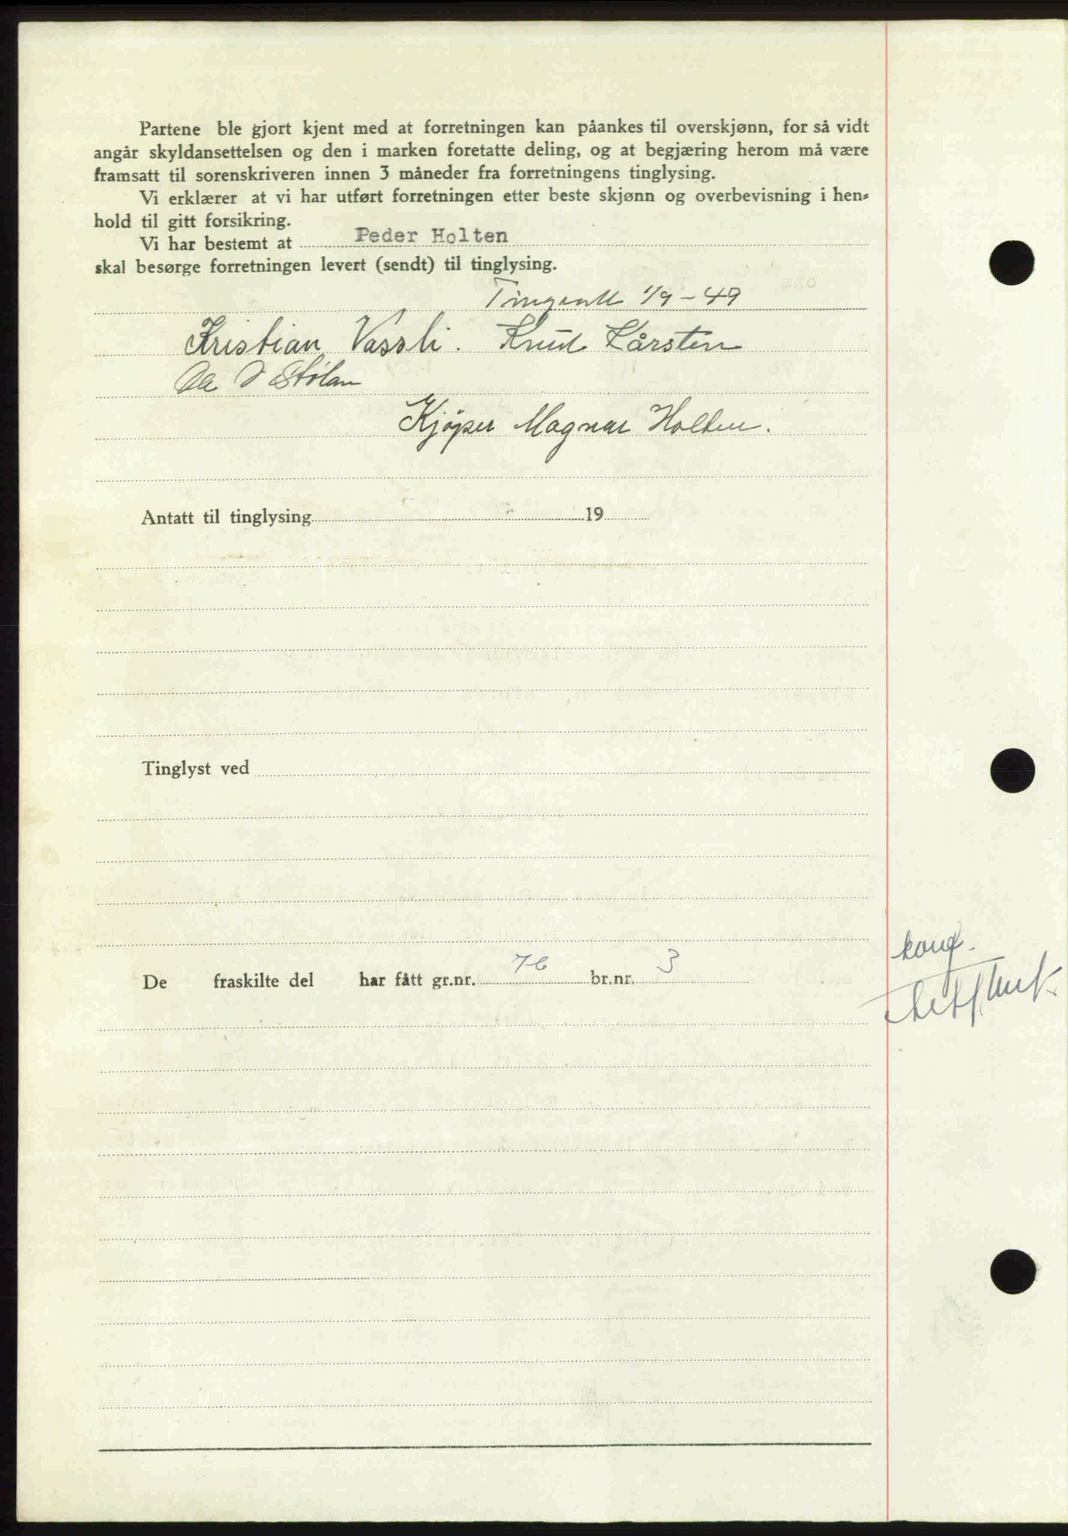 Partene ble gjort kjent med at forretningen kan påankes til overskjønn, for så vidt
angår skyldansettelsen og den i marken foretatte deling, og at begjæring herom må være
framsatt til sorenskriveren innen 3 måneder fra forretningens tinglysing.
Vi erklærer at vi har utført forretningen etter beste skjønn og overbevisning i hen-
hold til gitt forsikring.
Vi har bestemt at Peder Holten
skal besørge forretningen levert (sendt) til tinglysing.
1/9-49
Kristian Vassli. Knud Kårsten
Stølan
Kjøper Magnar Holten.
Antatt til tinglysing 19
Tinglyst ved
De fraskilte del har fått gr.nr. 76 br.nr. 3